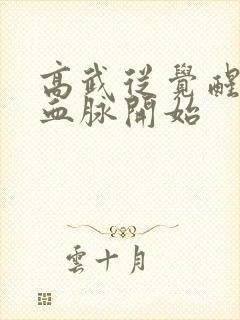 高武從覺醒
血脉開始
雲十月